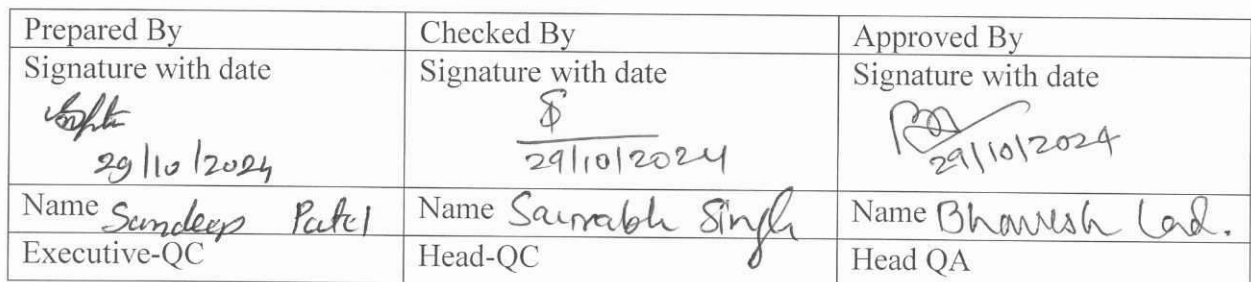 Prepared By
Checked By
Approved By
Signature with date
Signature with date
Signature with date
29/10/2024
29/10/2024
29/10/2024
Name Sandeep Patel
Name Saurabh Singh
Name Bhavesh Lad.
Executive-QC
Head-QC
Head QA